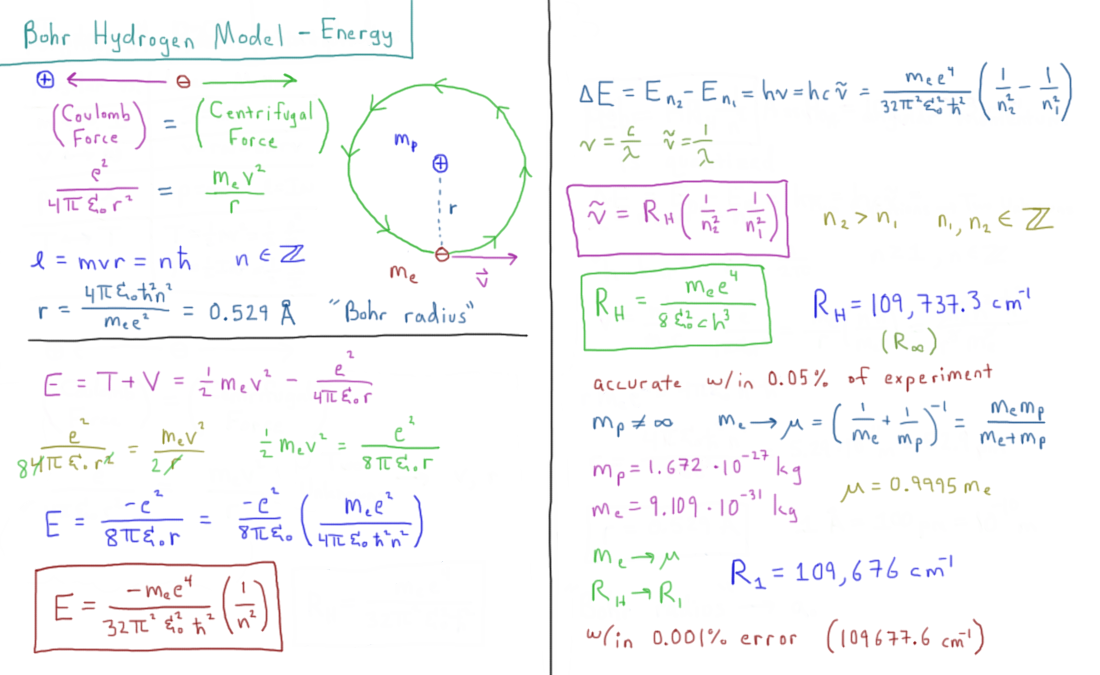 Bohr Hydrogen Model - Energy
⊕ ⊖
(Coulomb Force) = (Centrifugal Force)
e² / 4πε₀r² = mₑv² / r
mₚ
⊕
r
⊖
mₑ
v⃗
ℓ = mvr = nħ n ∈ ℤ
r = 4πε₀ħ²n² / mₑe² = 0.529 Å "Bohr radius"
E = T + V = ½ mₑv² - e² / 4πε₀r
e² / 84πε₀r² = mₑv² / 2r ½ mₑv² = e² / 8πε₀r
E = -e² / 8πε₀r = -e² / 8πε₀ (mₑe² / 4πε₀ħ²n²)
E = -mₑe⁴ / 32π²ε₀²ħ² (1/n²)
ΔE = Eₙ₂ - Eₙ₁ = hν = hcṽ = mₑe⁴ / 32π²ε₀²ħ² (1/n₂² - 1/n₁²)
ν = c/λ ṽ = 1/λ
ṽ = R_H (1/n₂² - 1/n₁²) n₂ > n₁ n₁, n₂ ∈ ℤ
R_H = mₑe⁴ / 8ε₀²ch³ R_H = 109,737.3 cm⁻¹
(R∞)
accurate w/in 0.05% of experiment
mₚ ≠ ∞ mₑ → μ = (1/mₑ + 1/mₚ)⁻¹ = mₑmₚ / mₑ+mₚ
mₚ = 1.672 · 10⁻²⁷ kg
mₑ = 9.109 · 10⁻³¹ kg μ = 0.9995 mₑ
mₑ → μ
R_H → R₁ R₁ = 109,676 cm⁻¹
w/in 0.001% error (109677.6 cm⁻¹)